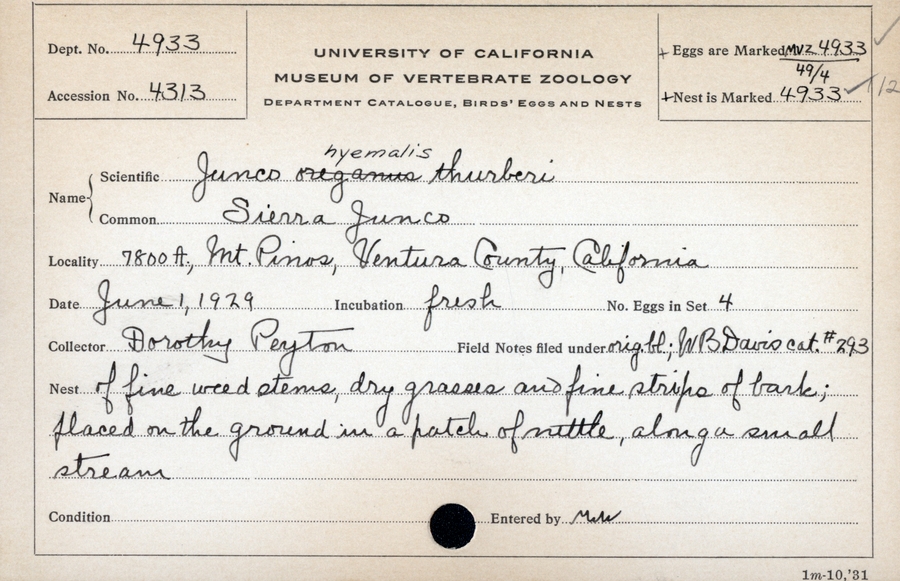 Dept. No. 4933
Accession No. 4313
UNIVERSITY OF CALIFORNIA
MUSEUM OF VERTEBRATE ZOOLOGY
DEPARTMENT CATALOGUE, BIRDS' EGGS AND NESTS
+ Eggs are Marked MVZ 4933
49/4
+ Nest is Marked 4933
hyemalis
Name Scientific Junco oreganus thurberi
Common Sierra Junco
Locality 7800 ft., Mt. Pinos, Ventura County, California
Date June 1, 1929 Incubation fresh No. Eggs in Set 4
Collector Dorothy Peyton Field Notes filed under orig. bl; WB Davis cat. # 293
Nest of fine weed stems, dry grasses and fine strips of bark;
placed on the ground in a patch of nettle, along a small
stream
Condition Entered by
1m-10,'31